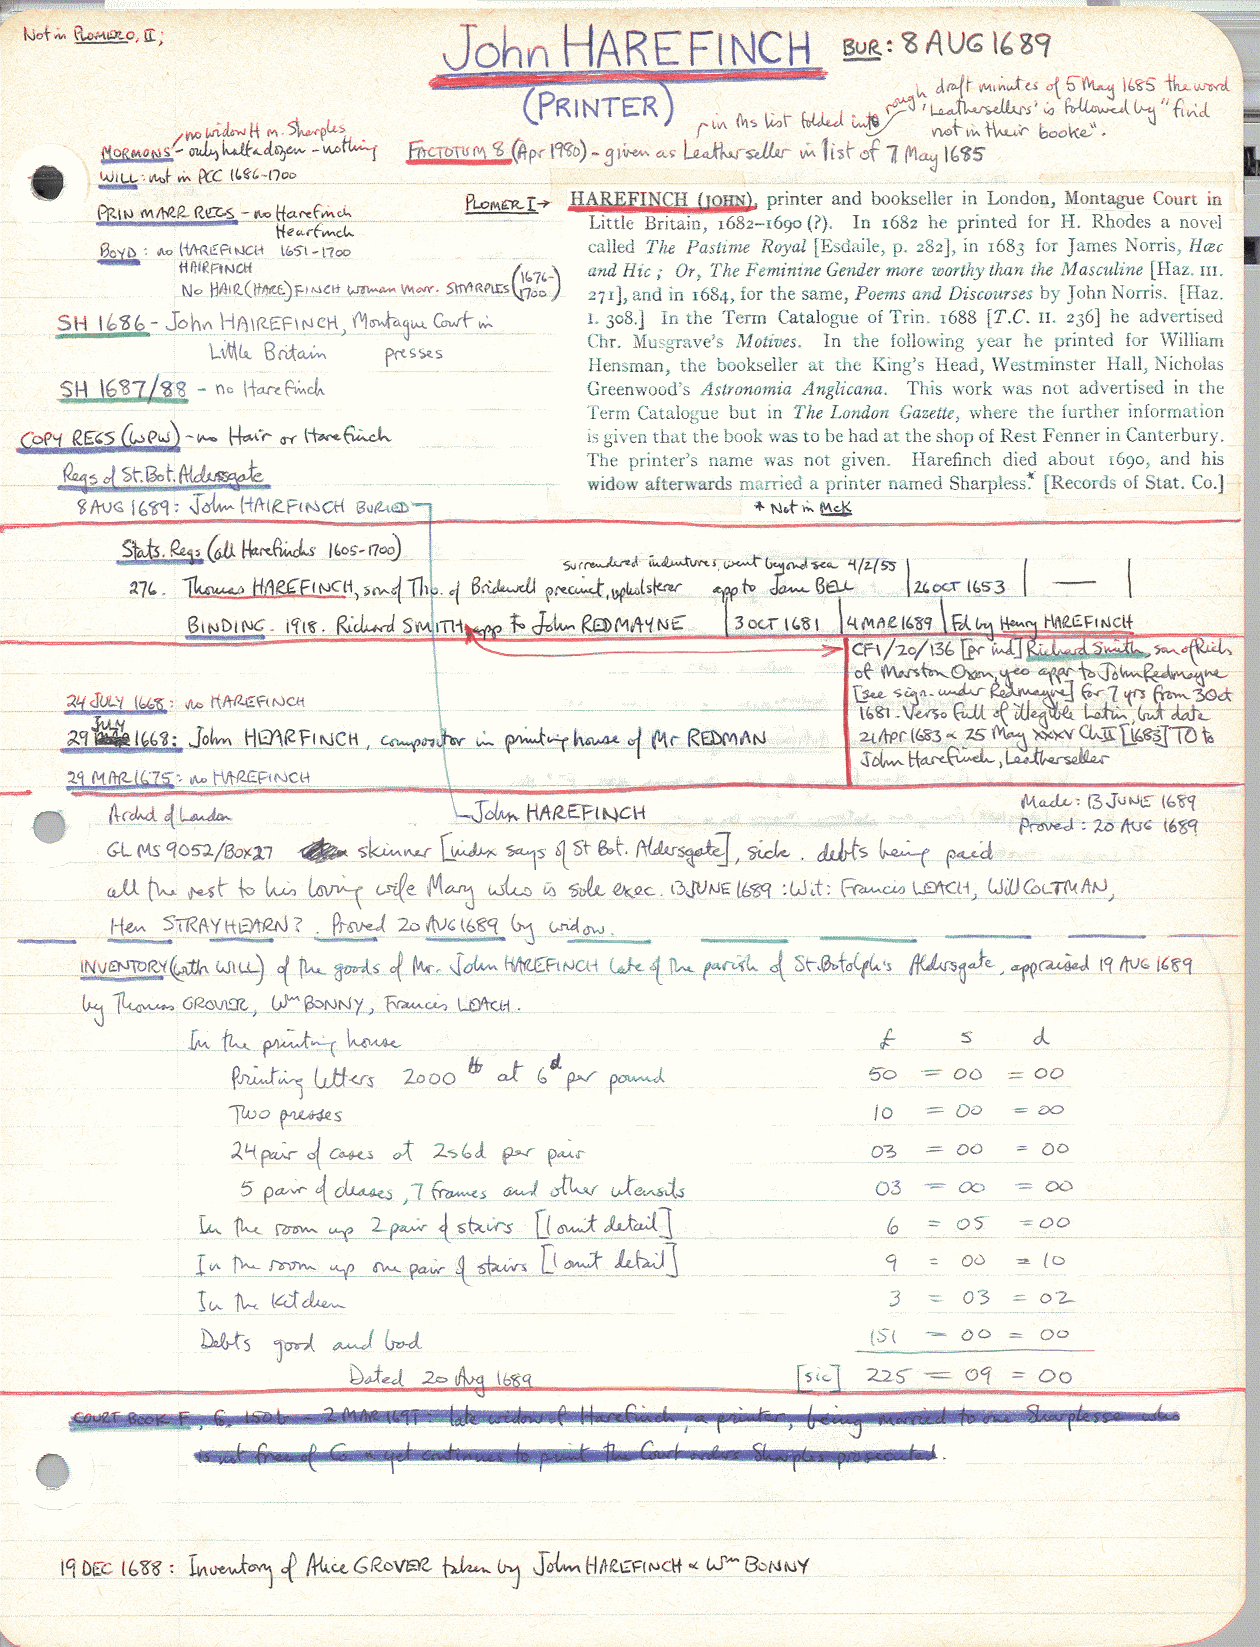 Not in PLOMERO, II;
John HAREFINCH BUR: 8 AUG 1689
(PRINTER)
in Ms list folded into rough draft minutes of 5 May 1685 the word
'Leathersellers' is followed by "find
not in their booke".
no widow H m. Sharples
MORMONS - only half a dozen - nothing
FACTOTUM 8 (Apr 1980) - given as Leatherseller in list of 7 May 1685
WILL: not in PCC 1686-1700
PRIN MARR REGS - no Harefinch
Hearfinch
BOYD: no HAREFINCH 1651-1700
HAIRFINCH
No HAIR(HARE)FINCH woman marr. SHARPLES (1676-1700)
SH 1686 - John HAIREFINCH, Montague Court in
Little Britain presses
SH 1687/88 - no Harefinch
COPY REGS (WPW) - no Hair or Harefinch
Regs of St. Bot. Aldersgate
8 AUG 1689: John HAIRFINCH BURIED
PLOMER I → HAREFINCH (JOHN), printer and bookseller in London, Montague Court in
Little Britain, 1682-1690 (?). In 1682 he printed for H. Rhodes a novel
called The Pastime Royal [Esdaile, p. 282], in 1683 for James Norris, Hæc
and Hic ; Or, The Feminine Gender more worthy than the Masculine [Haz. III.
271], and in 1684, for the same, Poems and Discourses by John Norris. [Haz.
I. 308.] In the Term Catalogue of Trin. 1688 [T.C. II. 236] he advertised
Chr. Musgrave's Motives. In the following year he printed for William
Hensman, the bookseller at the King's Head, Westminster Hall, Nicholas
Greenwood's Astronomia Anglicana. This work was not advertised in the
Term Catalogue but in The London Gazette, where the further information
is given that the book was to be had at the shop of Rest Fenner in Canterbury.
The printer's name was not given. Harefinch died about 1690, and his
widow afterwards married a printer named Sharpless.* [Records of Stat. Co.]
* Not in McK
Stats. Regs (all Harefinchs 1605-1700)
surrendered indentures, went beyond sea 4/2/55
276. Thomas HAREFINCH, son of Tho. of Bridewell precinct, upholsterer app to Jane BELL 26 OCT 1653 —
BINDING. 1918. Richard SMITH app to John REDMAYNE 3 OCT 1681 4 MAR 1689 Fd by Henry HAREFINCH
CF1/20/136 [pr ind] Richard Smith, son of Rich
of Marston Oxon, yeo appr to John Redmayne
[see sign. under Redmayne] for 7 yrs from 3 Oct
1681. Verso full of illegible Latin, but date
21 Apr 1683 & 25 May xxxv Ch II [1683] TO to
John Harefinch, Leatherseller
24 JULY 1668: no HAREFINCH
July
29 1668: John HEARFINCH, compositor in printing house of Mr REDMAN
29 MAR 1675: no HAREFINCH
Archd of London John HAREFINCH Made: 13 JUNE 1689
Proved: 20 AUG 1689
GL MS 9052/Box 27 skinner [index says of St Bot. Aldersgate], sick. debts being paid
all the rest to his loving wife Mary who is sole exec. 13 JUNE 1689: Wit: Francis LEACH, Will COLTMAN,
Hen STRAYHEARN? Proved 20 AUG 1689 by widow.
INVENTORY (with WILL) of the goods of Mr. John HAREFINCH late of the parish of St. Botolph's Aldersgate, appraised 19 AUG 1689
by Thomas GROVER, Wm BONNY, Francis LEACH.
In the printing house £ s d
Printing letters 2000 lb at 6d per pound 50 = 00 = 00
Two presses 10 = 00 = 00
24 pair of cases at 2s6d per pair 03 = 00 = 00
5 pair of chases, 7 frames and other utensils 03 = 00 = 00
In the room up 2 pair of stairs [I omit detail] 6 = 05 = 00
In the room up one pair of stairs [I omit detail] 9 = 00 = 10
In the Kitchen 3 = 03 = 02
Debts good and bad 151 = 00 = 00
Dated 20 Aug 1689 [sic] 225 = 09 = 00
COURT BOOK F, 150b - 2 MAR 1691: late widow of Harefinch, a printer, being married to one Sharplesse who
is not free of Co yet continues to print the Court orders Sharples prosecuted.
19 DEC 1688: Inventory of Alice GROVER taken by John HAREFINCH & Wm BONNY